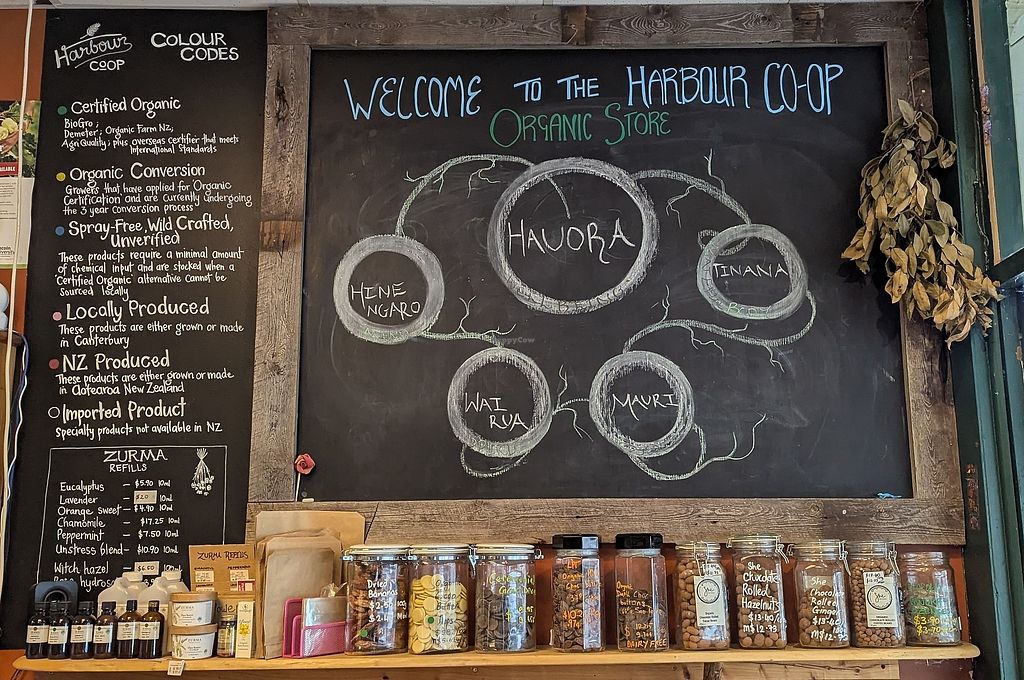 Harbour
CO-OP
COLOUR
CODES
Certified Organic
BioGro;
Demeter; Organic Farm NZ;
AgriQuality; plus overseas certifier that meets
International Standards
Organic Conversion
Growers that have applied for Organic
Certification and are currently undergoing
the 3 year conversion process
Spray-Free, Wild Crafted,
Unverified
These products require a minimal amount
of chemical input and are stocked when a
'Certified Organic' alternative cannot be
sourced locally
Locally Produced
These products are either grown or made
in Canterbury
NZ Produced
These products are either grown or made
in Aotearoa New Zealand
Imported Product
Specialty products not available in NZ
ZURMA
REFILLS
Eucalyptus – $5.90 10ml
Lavender – $20 10ml
Orange sweet – $4.90 10ml
Chamomile – $17.25 10ml
Peppermint – $7.50 10ml
Unstress blend – $10.90 10ml
Witch hazel – $6.50
hydroso
WELCOME TO THE HARBOUR CO-OP
ORGANIC STORE
HAUORA
HINE
NGARO
TINANA
BODY
WAI
RUA
MAURI
HappyCow
ZURMA REFILLS
Dried
Bananas
DAIRY FREE
She
Chocolate
Rolled
Hazelnuts
$13.40
M$12.73
She
Chocolate
Rolled
Ginger
$13.40
$3.90
$3.70